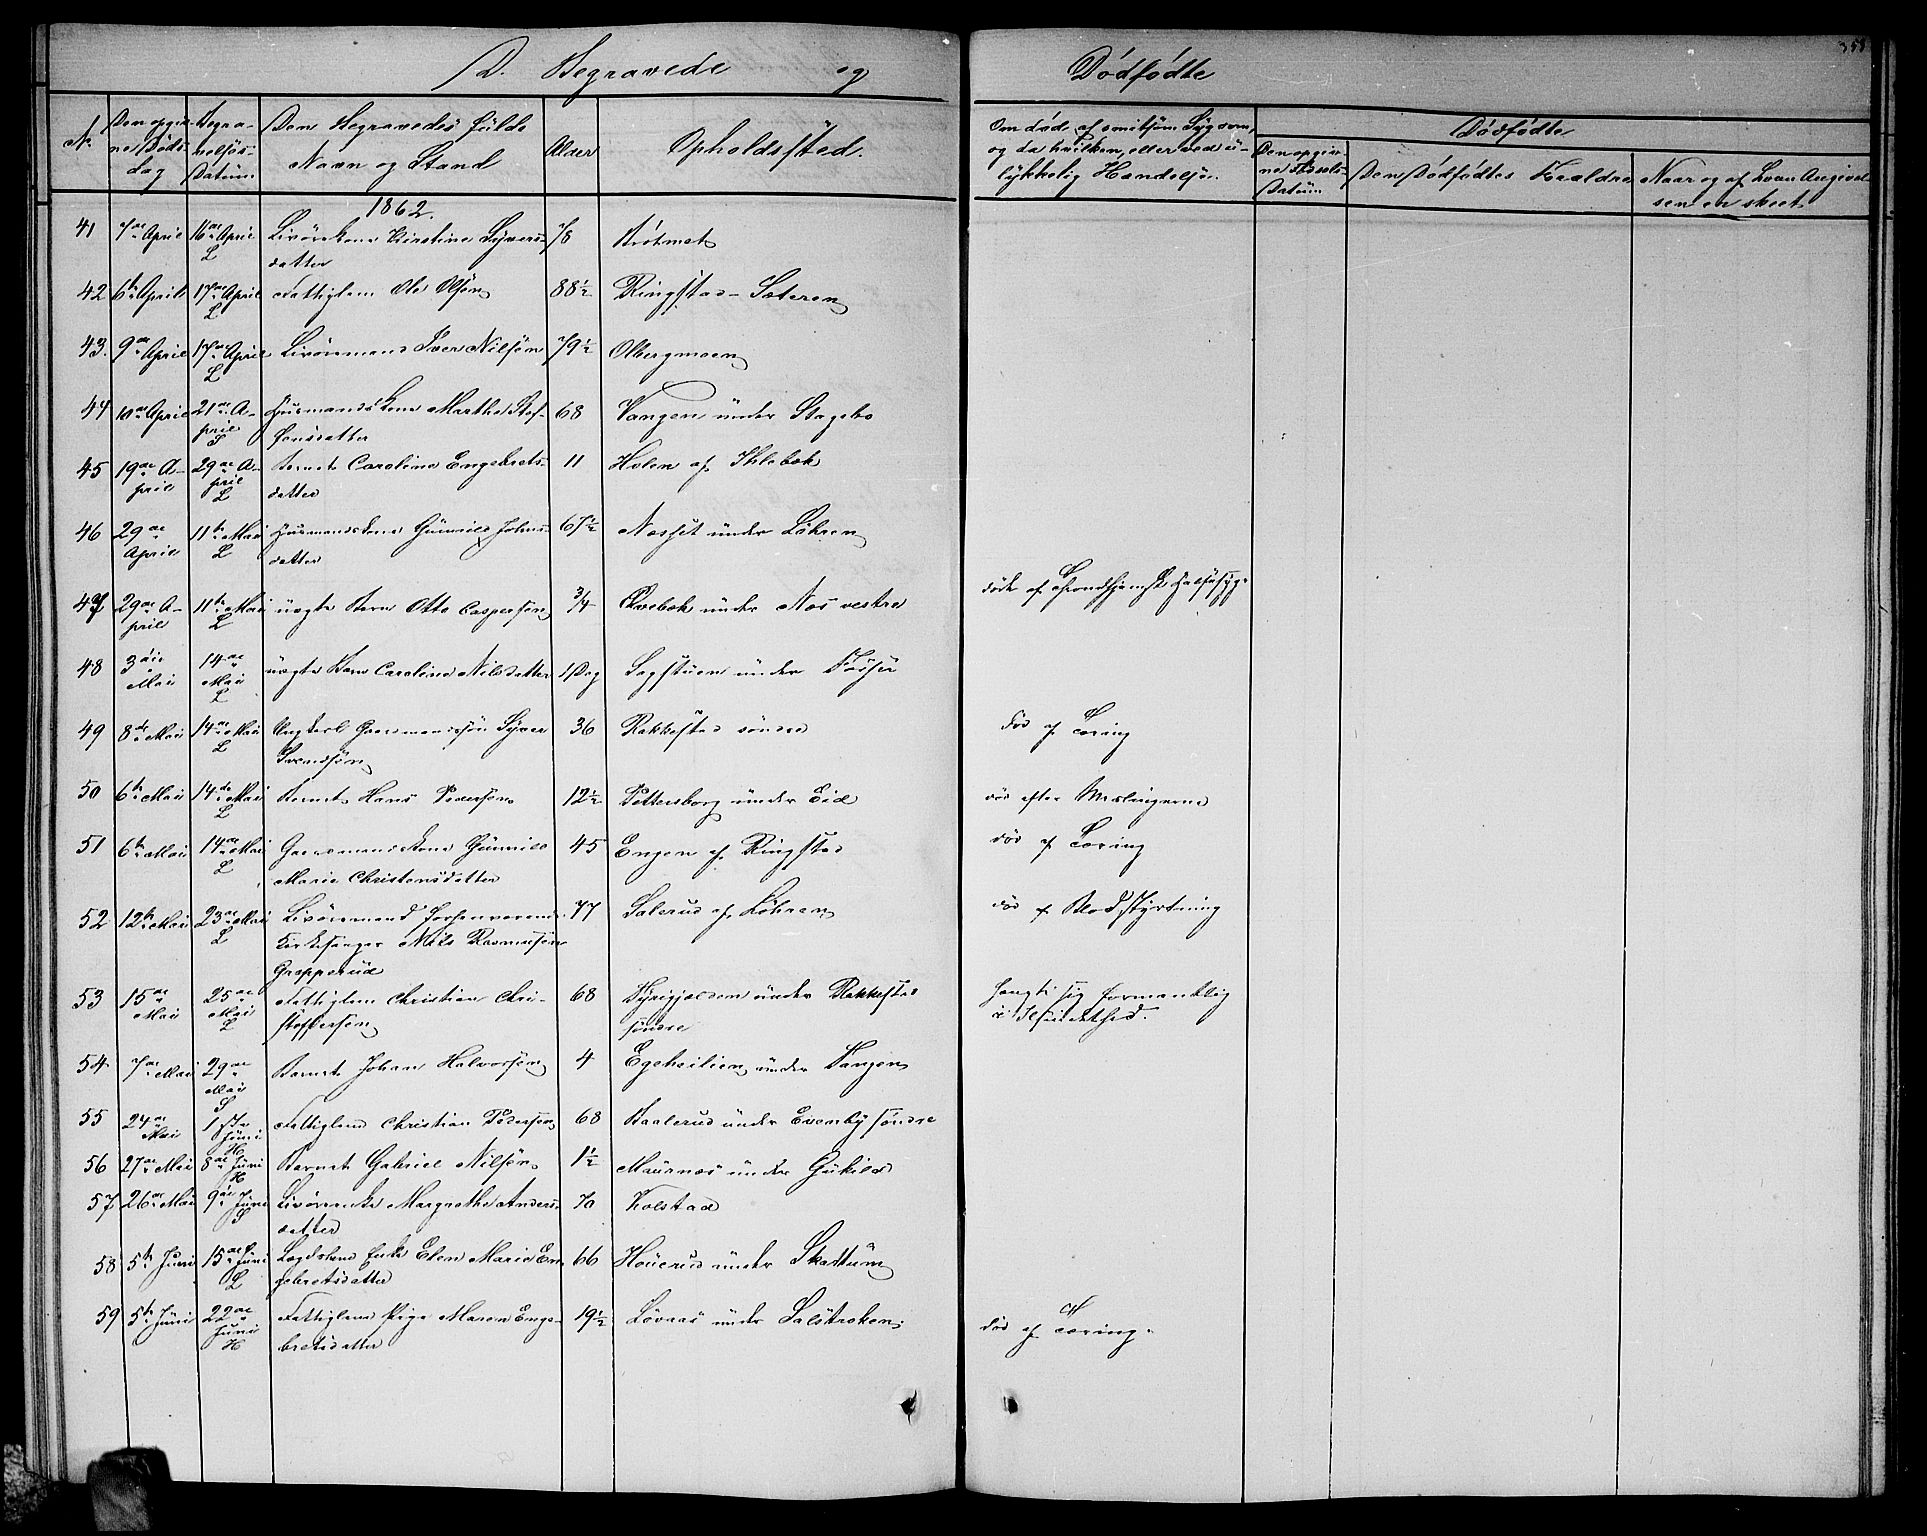 D. Begravede og Dødfødte
355
No.
Den opgivne Døds-dag
Begravelses-Datum
Den Begravedes fulde Navn og Stand
Alder
Opholdssted.
Om død af smitsom Sygdom, og da hvilken, eller ved ulykkelig Hændelse.
Dødfødte
Den opgivne Fødsels-Datum
Den Dødfødtes Forældre
Naar og af hvem Angivelsen er skeet
1862.
41 7de April 16de April L Livørskone Kirstine Syversdatter 78 Brøtmet
42 6te April 17de April L Fattiglem Ole Olsen 88½ Ringstad-Sæteren
43. 9de April 17de April L Livøremand Iver Nilsøn 79½ Olbergmoen
44 10de April 21de April S Huusmandskone Marthe Steffensdatter 68 Vangen under Stagebo
45 19de April 29de April L Barnet Caroline Engebretsdatter 11 Holen af Ihlebæk
46 29de April 11te Mai L Huusmandskone Gunnild Johnsdatter 67½ Næsset under Løhren
47 29de April 11te Mai L uægte Barn Otto Caspersen ¾ Qvebæk under Næs vestre døde af Trondhjemsk Halssyge
48 3die Mai 14de Mai L uægte Barn Caroline Nilsdatter 1 Dag Sagstuen under Fosser
49 8de Mai 14de Mai L Ungkarl Gaardmandssøn Syver Svendsøn 36 Rakkestad søndre død af Tæring
50 6te Mai 14de Mai L Barnet Hans Pedersen 12½ Pettersborg under Eid død efter Mæslingerne
51 6te Mai 14de Mai L Gaardmandskone Gunnild Marie Christensdatter 45 Engen af Ringstad død af Tæring
52 12te Mai 23de Mai L Livøremand forhenværende Kirkesanger Nils Rasmusøn Græpperud 77 Salerud af Løhren død af Blodstyrtning
53 15de Mai 25de Mai L Fattiglem Christian Christoffersen 68 under Rakkestad søndre hængte sig formentlig i
54 7de Mai 29de Mai S Barnet Johan Halvorsen 4 Egeheilien under Vangen
55 24de Mai 1ste Juni H Fattiglem Christian Pedersen 68 Baalerud under Evenby søndre
56 27de Mai 8de Juni H Barnet Gabriel Nilsøn 1½ Maurnæs under Gukild
57 26de Mai 9de Juni S Livørenke Margrethe Andersdatter 70 Kolstad
58 5te Juni 15de Juni L Lægdslems Enke Elen Marie Engebretsdatter 66 Houerud under Skattum
59 5te Juni 22de Juni H Fattiglem Pige Maren Engebretsdatter 19½ Løvaas under Salstroken død af Tæring.